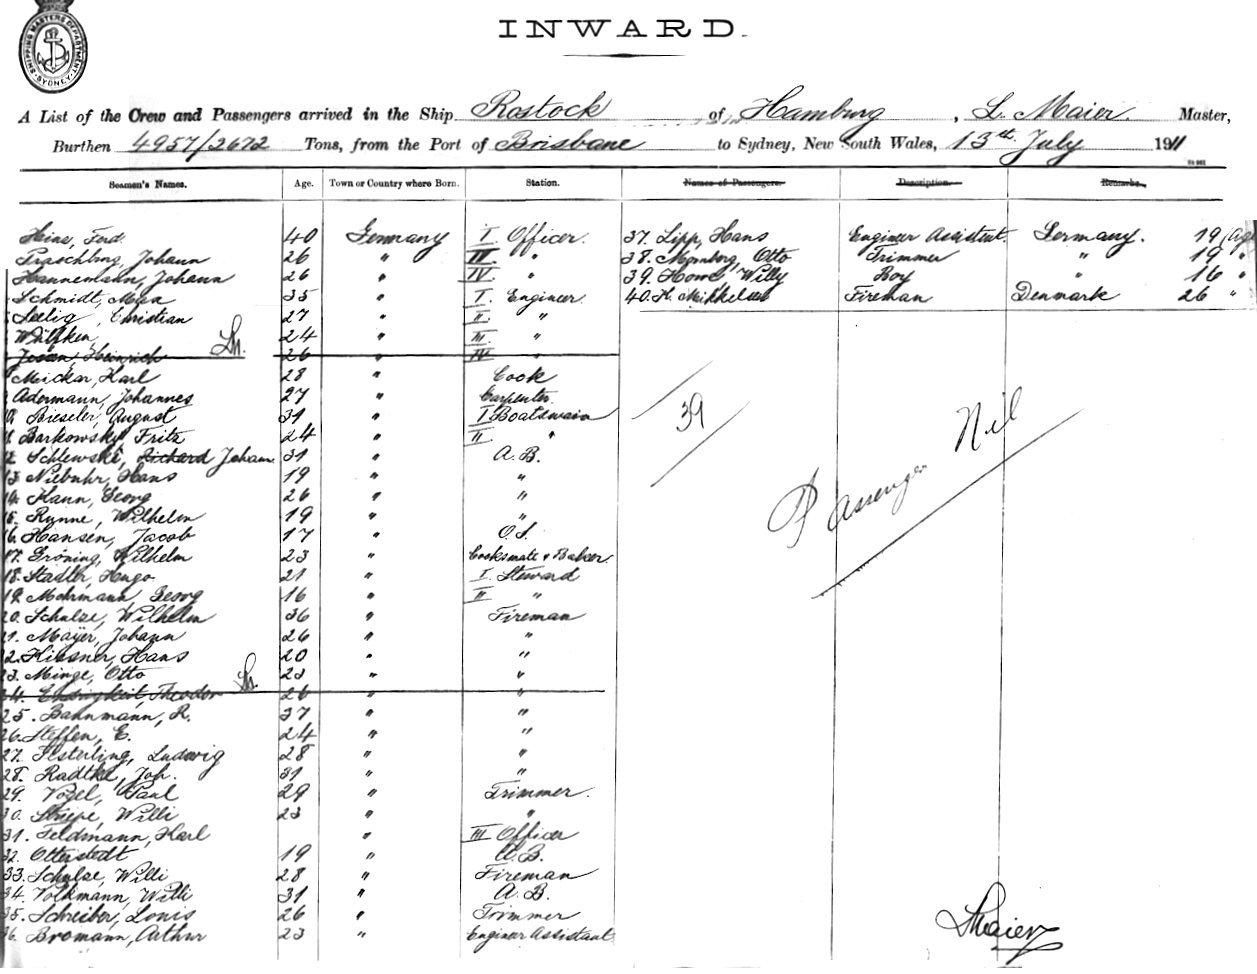 SHIPPING MASTERS DEPARTMENT SYDNEY
INWARD.
A List of the Crew and Passengers arrived in the Ship Rostock of Hamburg, L. Maier Master,
Burthen 4957/2672 Tons, from the Port of Brisbane to Sydney, New South Wales, 13th July 1911
Seamen's Names. Age. Town or Country where Born. Station. Names of Passengers. Description. Remarks.
Heine, Ferd. 40 Germany I Officer. 37. Lipp, Hans Engineer Assistent Germany. 19 (Age
Praschling, Johann 26 " " 38. Otto Trimmer " 19 "
Hannemann, Johann 26 " IV " 39. Howe, Willy Boy " 16 "
Schmidt, Max 35 " I. Engineer 40. H. Mikkelsen Fireman Denmark 26 "
Seelig, Christian 27 " II. "
Wülfken, 24 " III "
Heinrich Lm. 26 " IV "
Mickar, Karl 28 " Cook
Adermann, Johannes 27 " Carpenter
Bieseler, August 31 " I Boatswain 39
11. Barkowsky, Fritz 24 " II " Passenger Nil
12. Schlewski, Richard Johann 31 " A.B.
13. Niebuhr, Hans 19 " "
14. Hann, Georg 26 " "
15. Rynne, Wilhelm 19 " "
16. Hansen, Jacob 17 " O.S.
17. Gröning, Wilhelm 23 " Cooksmate & Baker.
18. Stadler, Hugo 21 " I. Steward
19. Mohrmann, Georg 16 " II "
20. Schulze, Wilhelm 36 " Fireman
21. Mayer, Johann 26 " "
22. Kissner, Hans 20 " "
23. Minge, Otto 23 " "
24. Theodor Lm. 26 " "
25. Bahnmann, R. 37 " "
26. Steffen, E. 24 " "
27. Festerling, Ludwig 28 " "
28. Radtke, Joh. 31 " "
29. Vogel, Paul 29 " Trimmer.
30. Willi 23 " "
31. Feldmann, Karl " III Officer
32. Otterstedt 19 " A.B.
33. Schulze, Willi 28 " Fireman
34. Volkmann, Willi 31 " A.B.
35. Schreiber, Louis 26 " Trimmer
36. Bromann, Arthur 23 " Engineer Assistant
L Maier